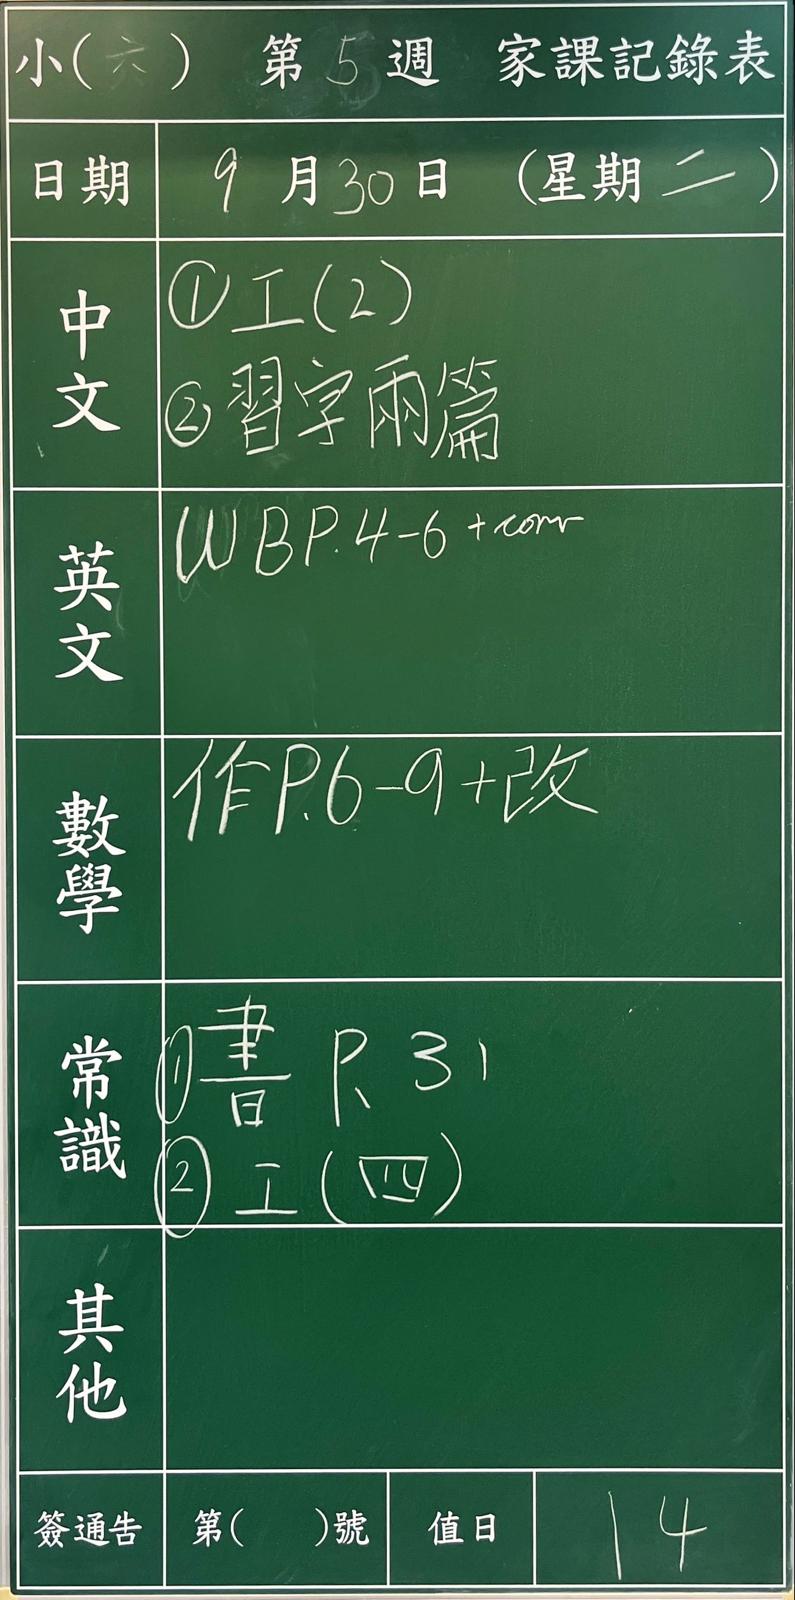 小(六) 第5週 家課記錄表
日期 9月30日 (星期二)
中文
①工(2)
②習字兩篇
英文
WB P.4-6 +corr
數學
作P.6-9+改
常識
①書 P. 31
②工(四)
其他
簽通告 第( )號 值日 14